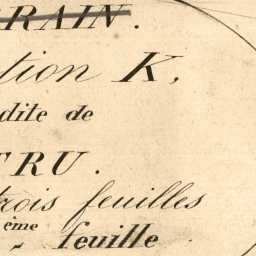 RAIN.
tion K,
dite de
TRU.
trois feuilles
ème feuille